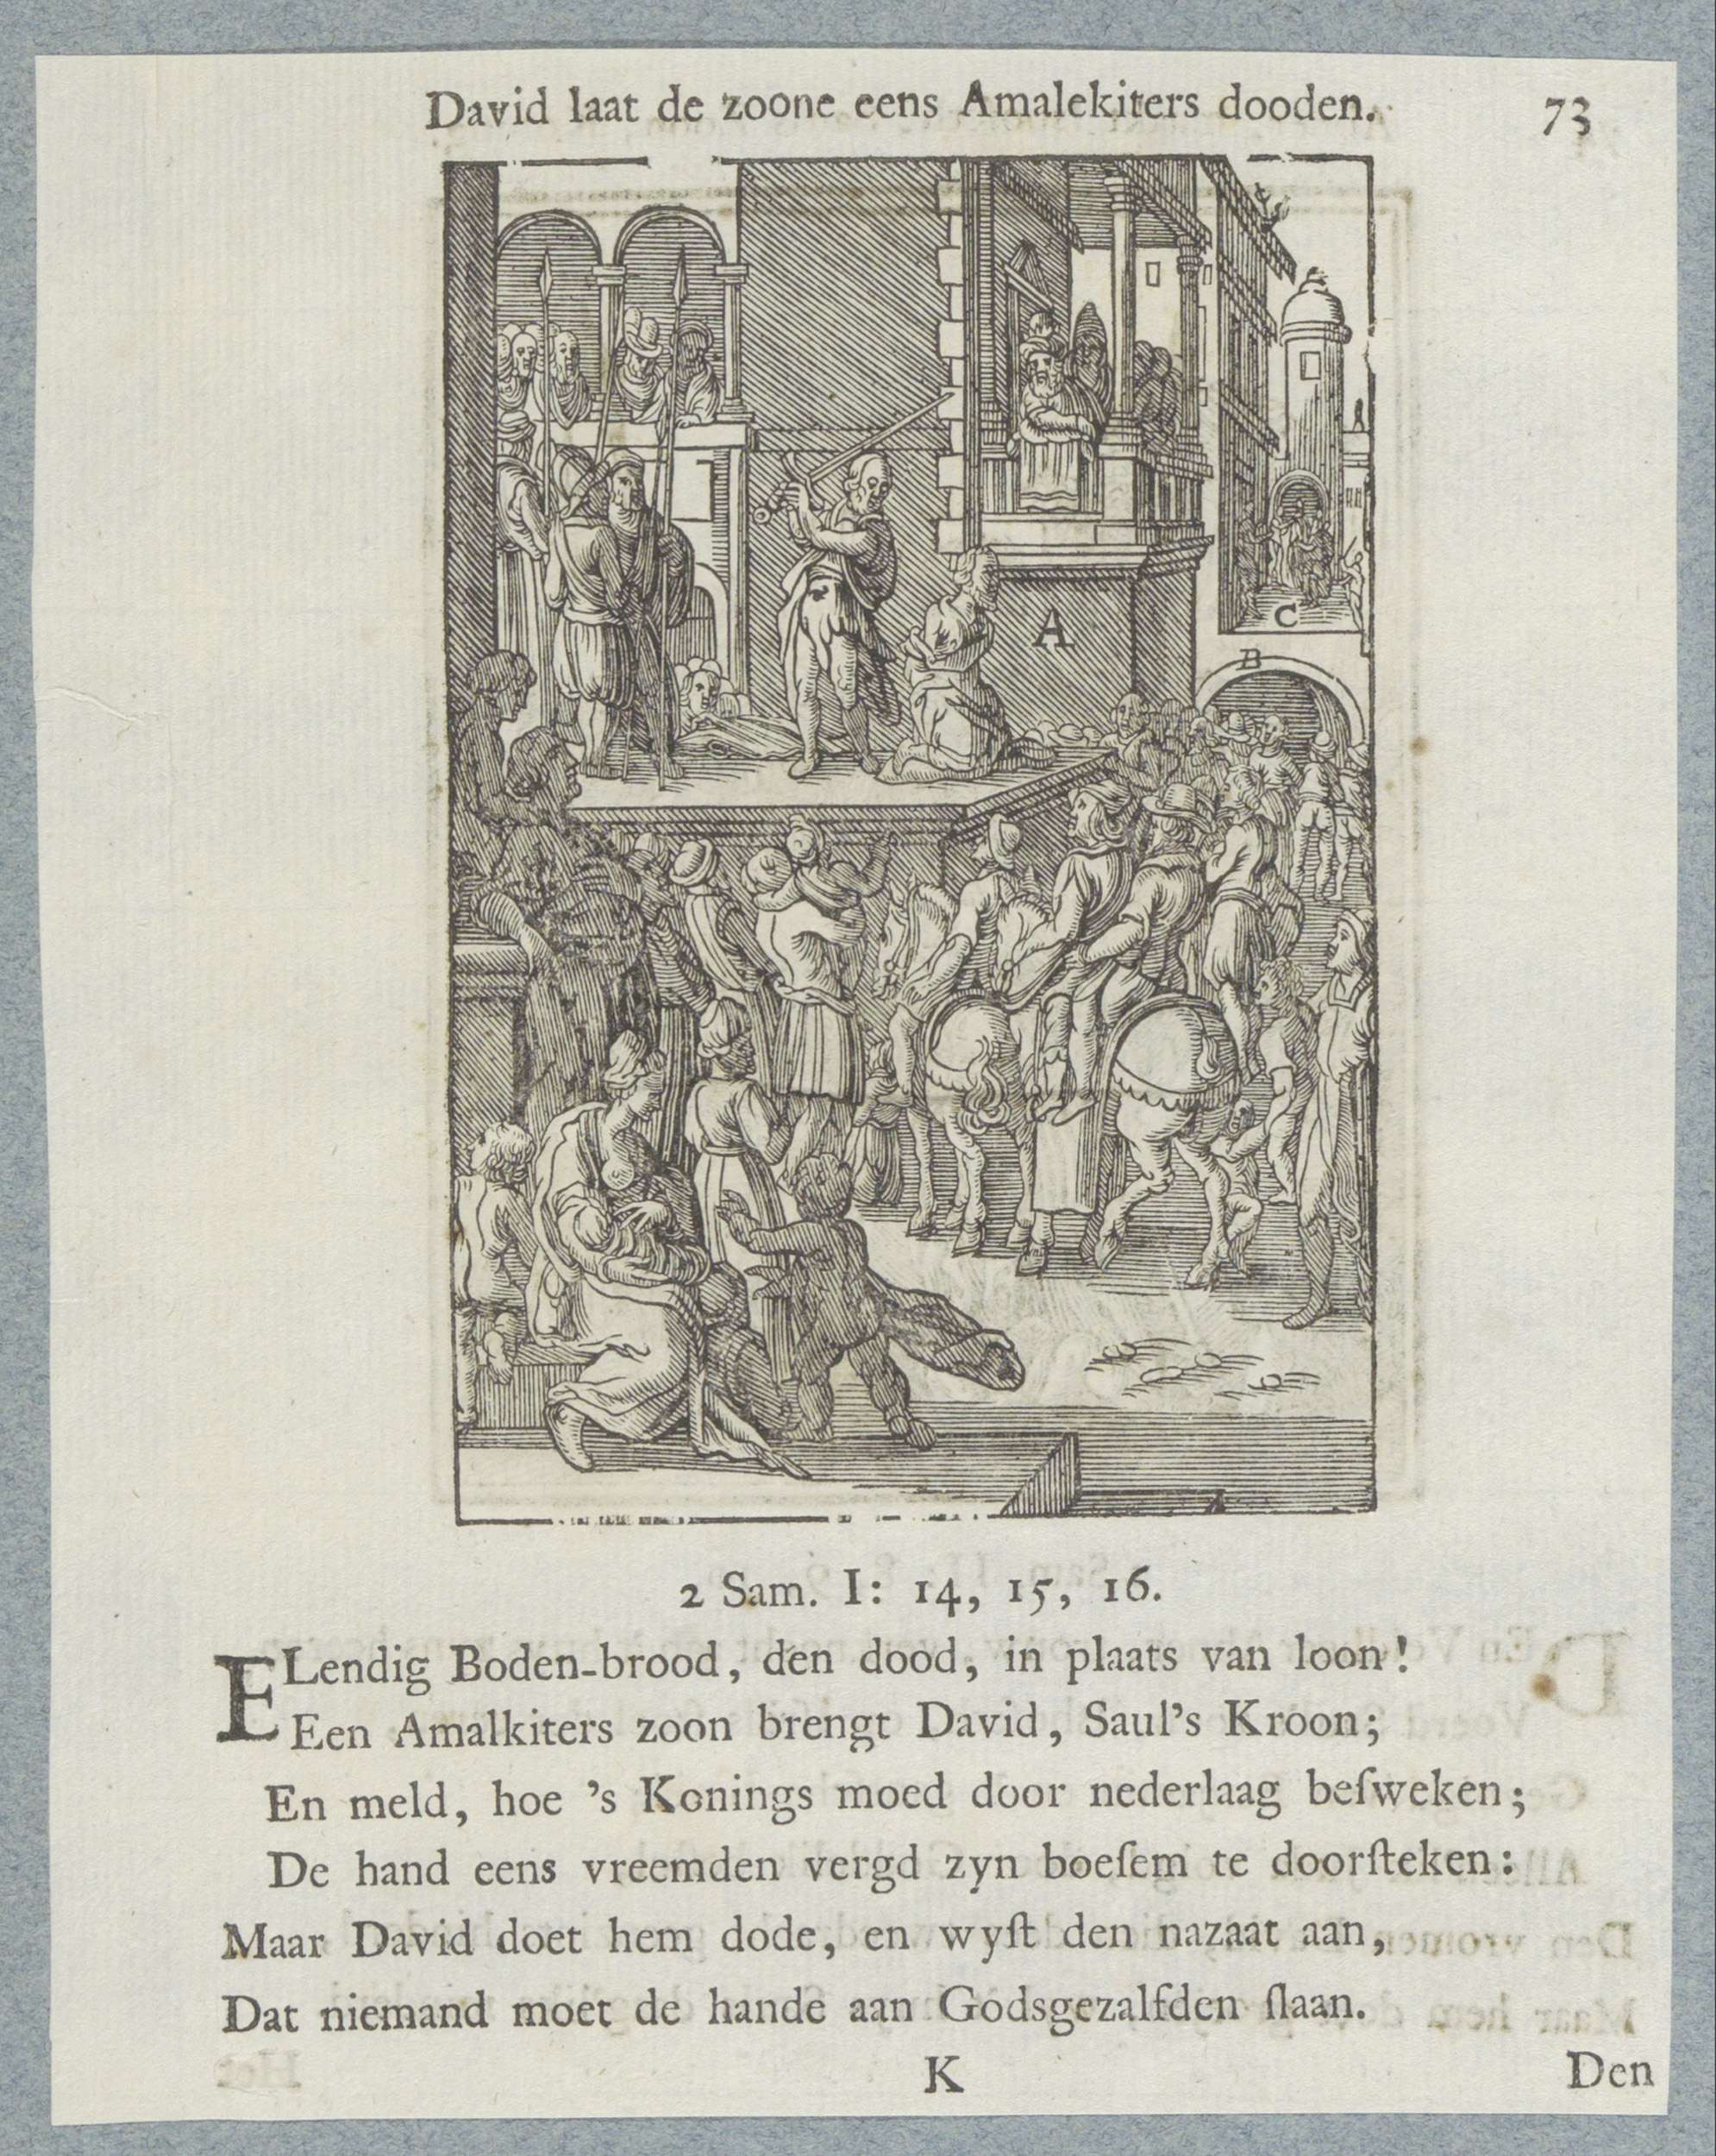 David laat de zoone eens Amalekiters dooden. 73
A
C
B
2 Sam. I: 14, 15, 16.
ELendig Boden-brood, den dood, in plaats van loon!
Een Amalkiters zoon brengt David, Saul's Kroon;
En meld, hoe 's Konings moed door nederlaag beſweken;
De hand eens vreemden vergd zyn boeſem te doorſteken:
Maar David doet hem dode, en wyſt den nazaat aan,
Dat niemand moet de hande aan Godsgezalfden ſlaan.
K Den